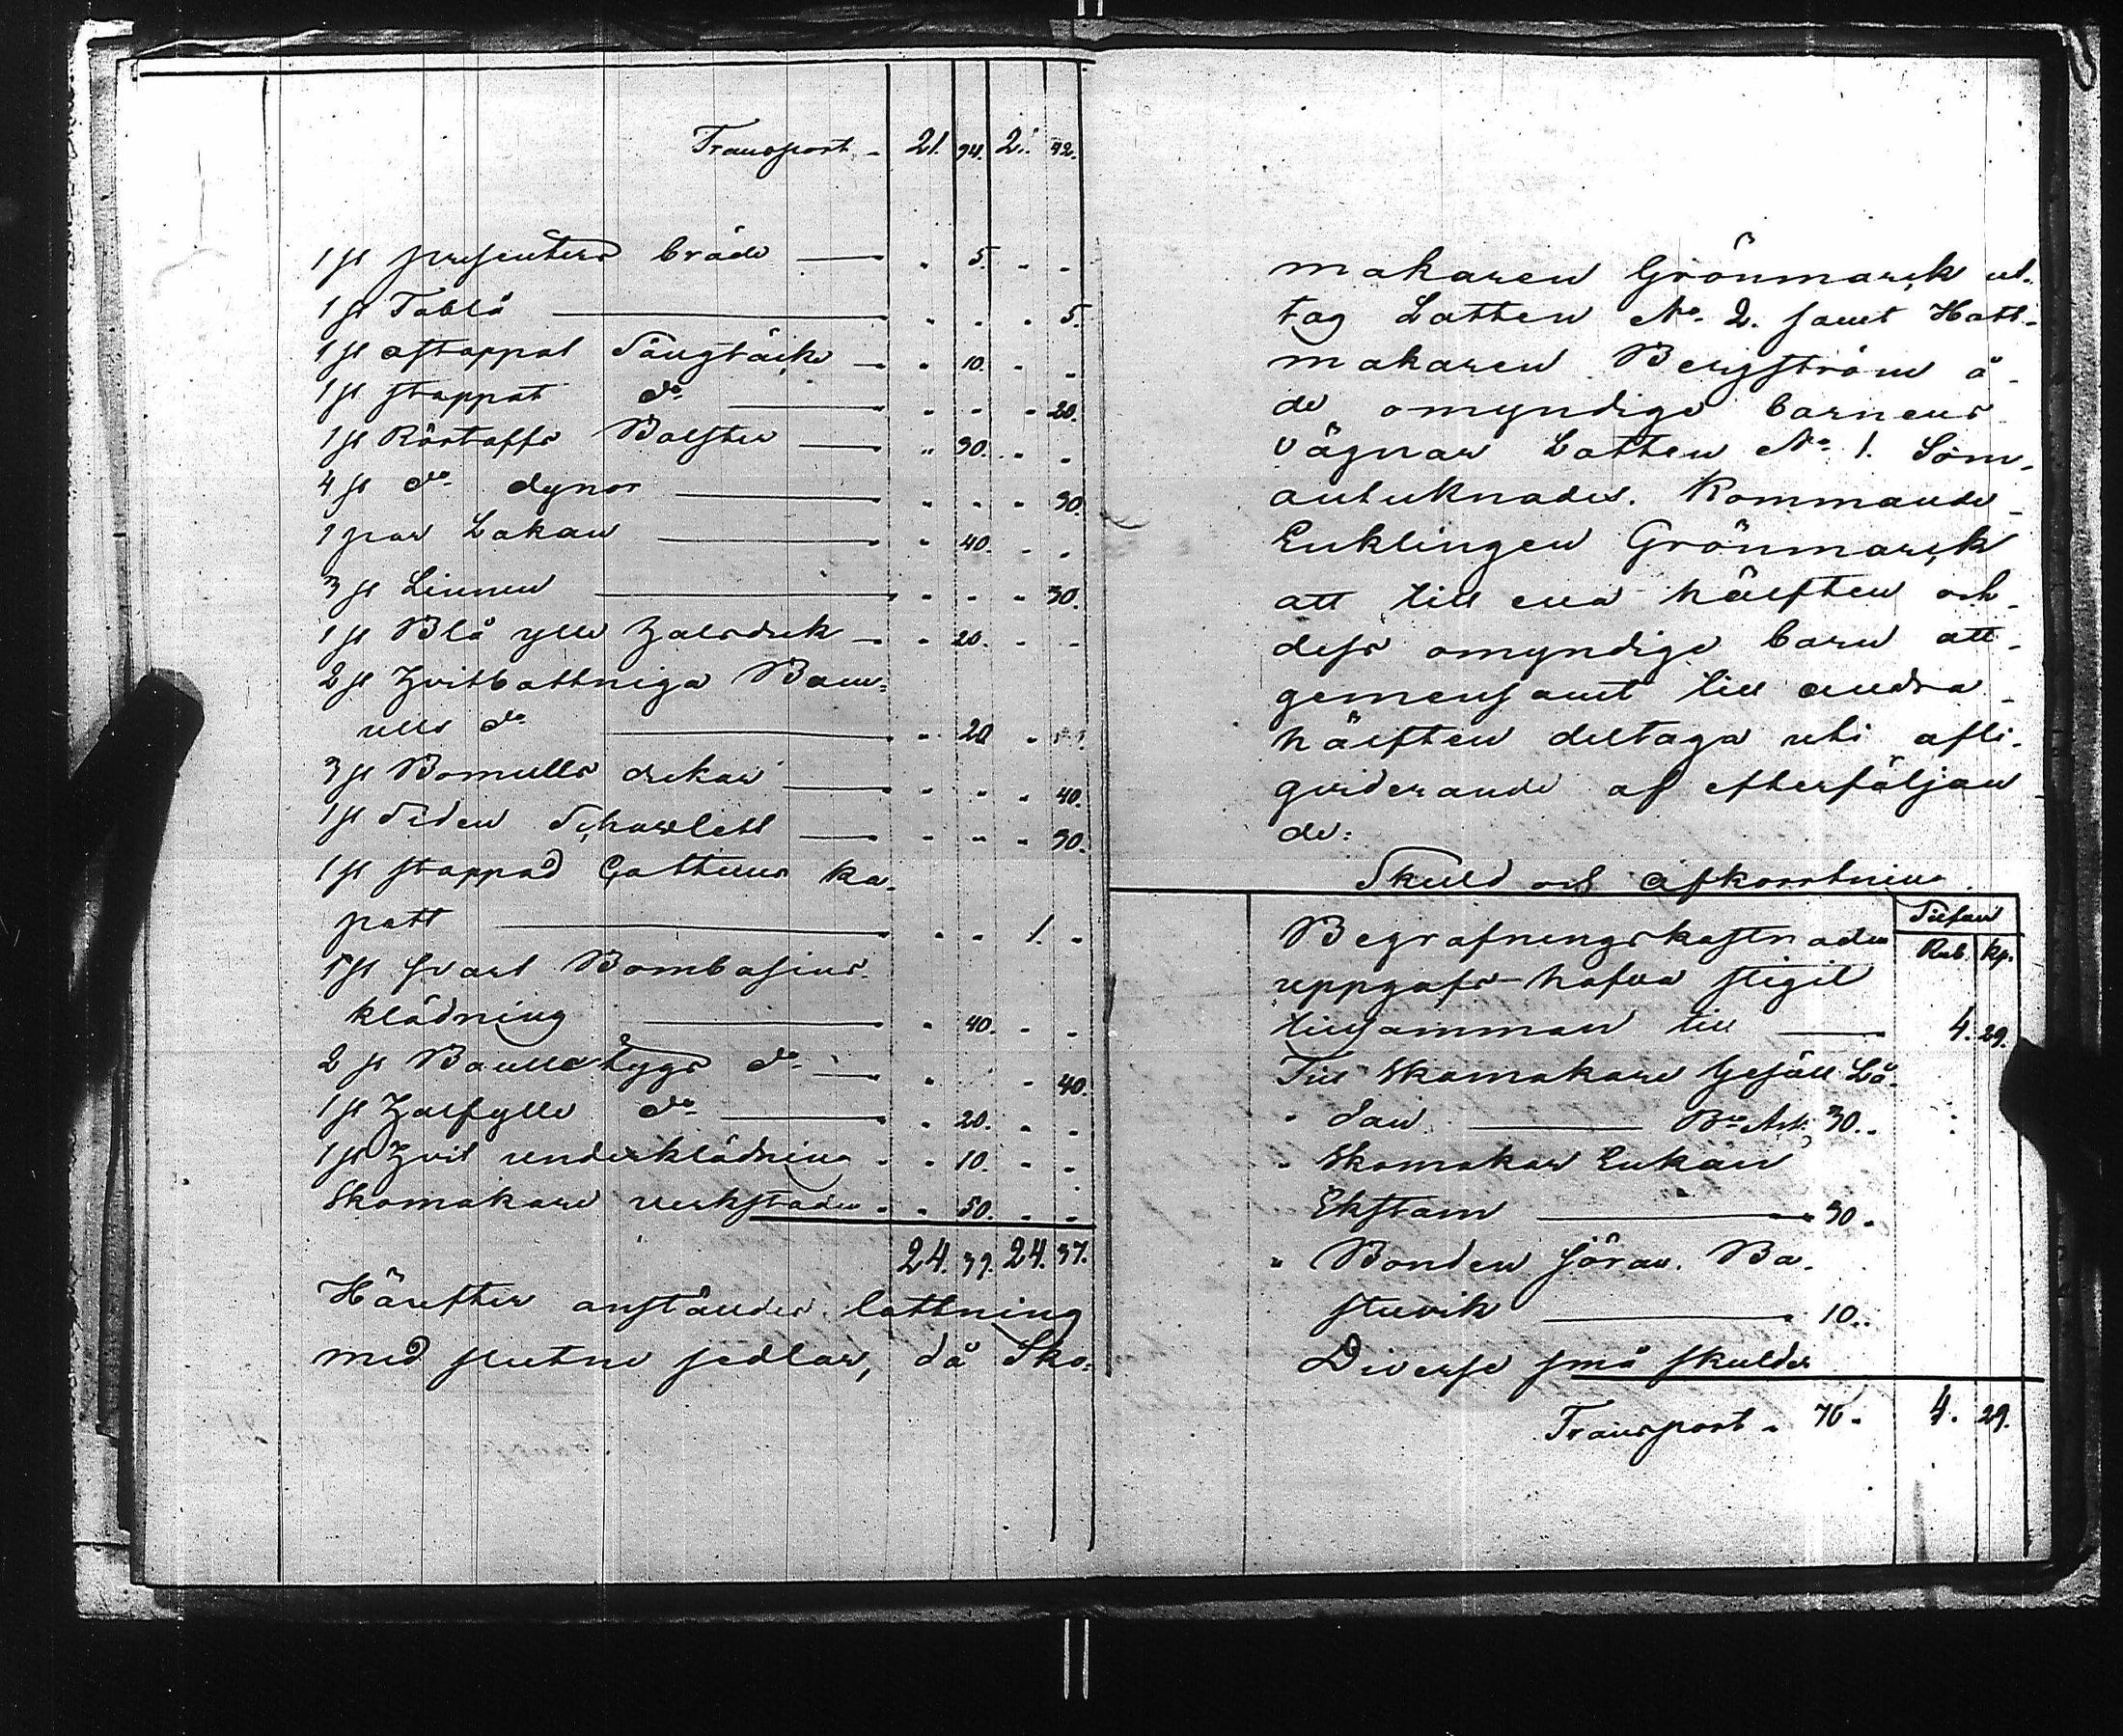 Transport - 21. 94. 2 . 42.
1 st presenter bräde — " 5. " "
1 st Tablå — " " " 5.
1 st ostoppat Sängtäcke — " 10. " "
1 st stoppat do — " " " 20.
1 st Rörtoffs Bolster — " 30. " "
4 st do dynor — " " " 30.
1 par Lakan — " 40. " "
3 st Linnen — " " " 30.
1 st Blå ylle halsduk — " 20. " "
2 st hvitbottniga Bom-
ulls do — " 20 "
3 st Bomulls dukar — " " " 40.
1 st Siden Schawlett — " " " 30.
1 st stoppad Cattuns ka-
pott — " " 1. "
1 st svart Bombasins
klädning — " 40. " "
2 st Baullstygs do — " " " 40.
1 st Halfylle do — " 20. " "
1 st hvit underklädning " " 10. " "
Skomakare verkstaden " " 50. " "
24. 39. 24. 37.
Härefter anstäldes lottning
med slutne sedlar, då Sko-
makaren Grönmarck ut-
tog Lotten No. 2. samt Hatt-
makaren Bergström å
de omyndige barnens
vägnar Lotten No 1. Som
antecknades. Kommande
Enklingen Grönmarck
att till ena hälften och
dess omyndige barn att
gemensamt till andra
hälften deltaga uti afli-
qviderande af efterföljan
de:
Skuld och afkortning
Silfver
Rub. Kp.
Begrafningskostnaden
uppgafs hafva stigit
tillsamman till — 4. 29.
Till Skomakare Gesäll Lö-
" dan — Bco Ass. 30.
" Skomakar Enkan
Ekstam — 30.
" Bonden Göran. Ba-
stuvik — 10.
Diverse små skulder
Transport. 70. 4. 29.